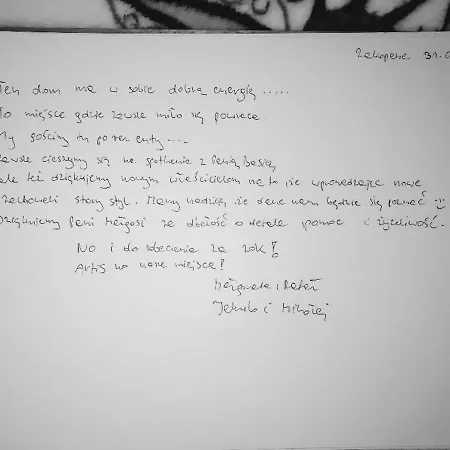 Zakopane 31.0
Ten dom ma w sobie dobrą energię .....
To miejsce gdzie zawsze miło się powraca.
My gościmy tu po raz enty ....
zawsze cieszymy się na spotkanie z Panią Basią
ale też dziękujemy nowym właścicielom za to że wprowadzając nowe
zachowali stary styl. Mamy nadzieję że dane nam będzie się pojawić
Dziękujemy Pani Małgosi za dbałość o detale pomoc i życzliwość.
No i do zobaczenia za rok!
na nowe miejsce!
Małgorzata i Rafał
Jakub i Mikołaj